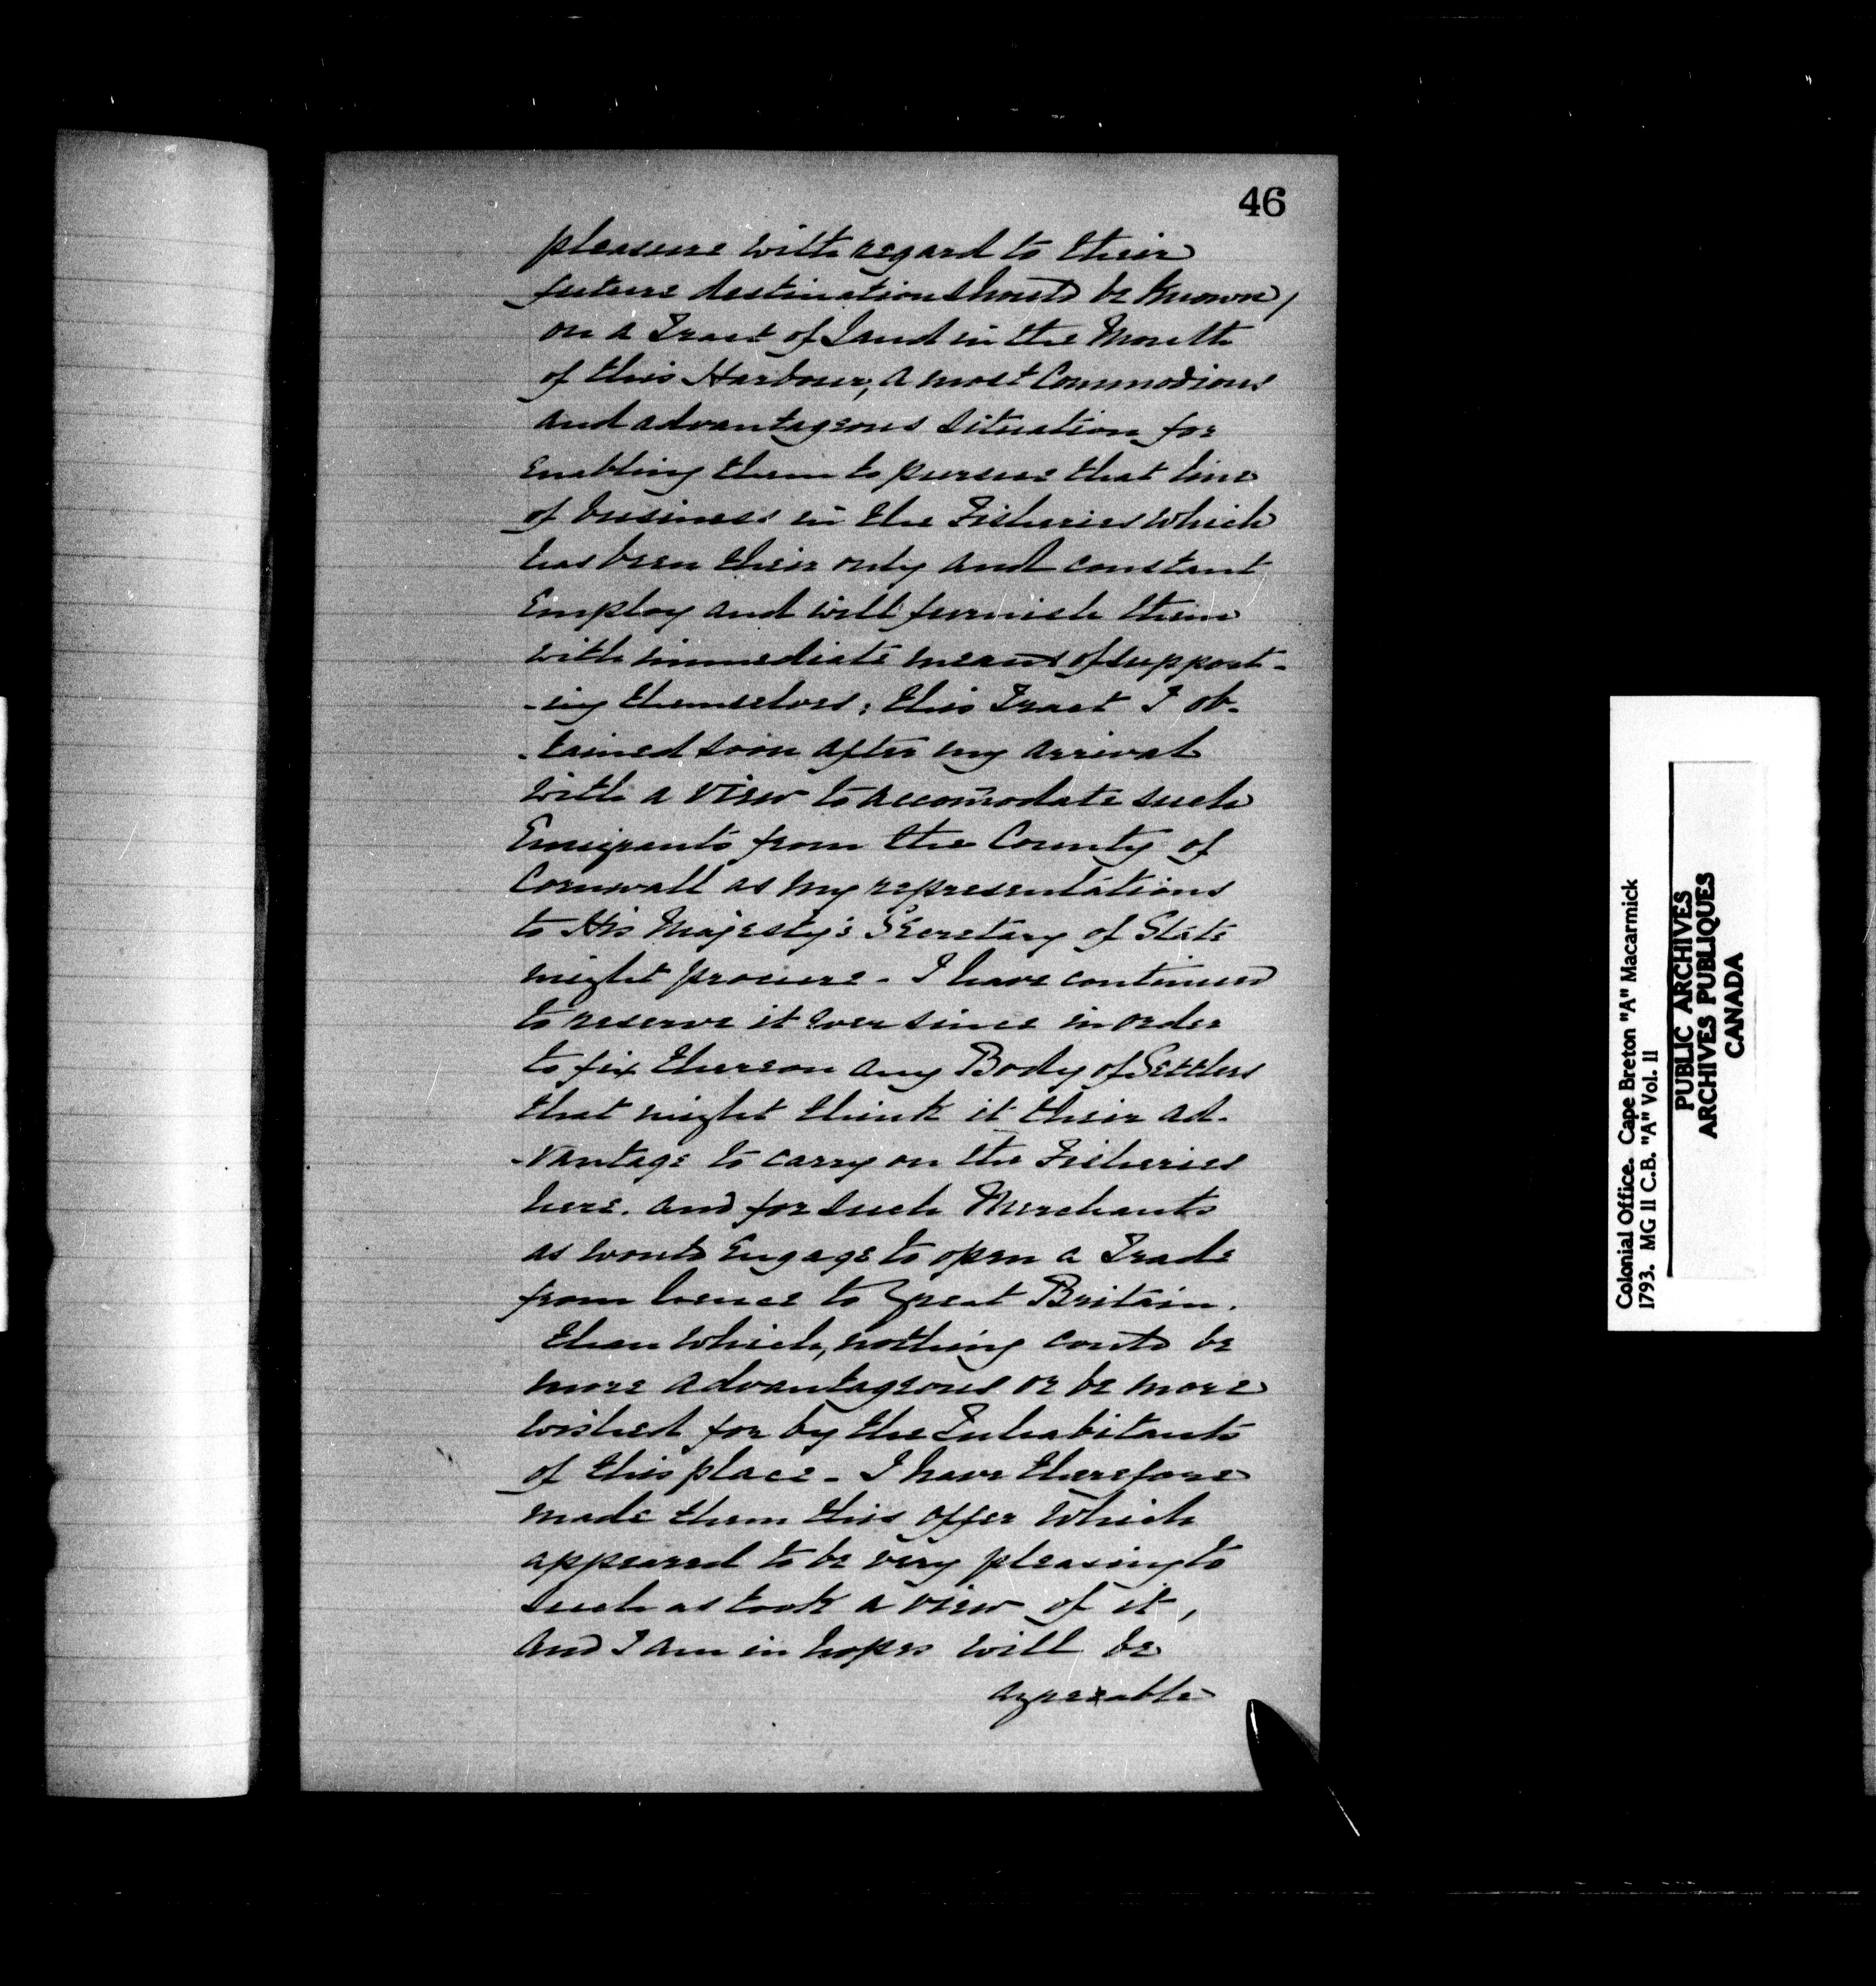 46
pleasure with regard to their
future destination should be known,
on a Tract of Land in the Mouth
of this Harbour, a most Commodious
and advantageous situation for
enabling them to pursue that line
of business in the Fisheries which
has been their only and constant
Employ and will furnish them
with immediate means of support-
-ing themselves; this Tract I ob-
-tained soon after my arrival
with a view to accomodate such
Emigrants from the County of
Cornwall as my representations
to His Majesty's Secretary of State
might procure - I have continued
to reserve it ever since in order
to fix thereon any Body of Settlers
that might think it their ad-
-vantage to carry on the Fisheries
here. and for such Merchants
as would Engage to open a Trade
from hence to Great Britain.
than which, nothing could be
more advantageous or be more
wished for by the Inhabitants
of this place - I have therefore
made them this offer which
appeared to be very pleasing to
such as took a view of it,
and I am in hopes will be
agreeable
Colonial Office. Cape Breton "A" Macarmick
1793. MG 11 C.B. "A" Vol. 11
PUBLIC ARCHIVES
ARCHIVES PUBLIQUES
CANADA